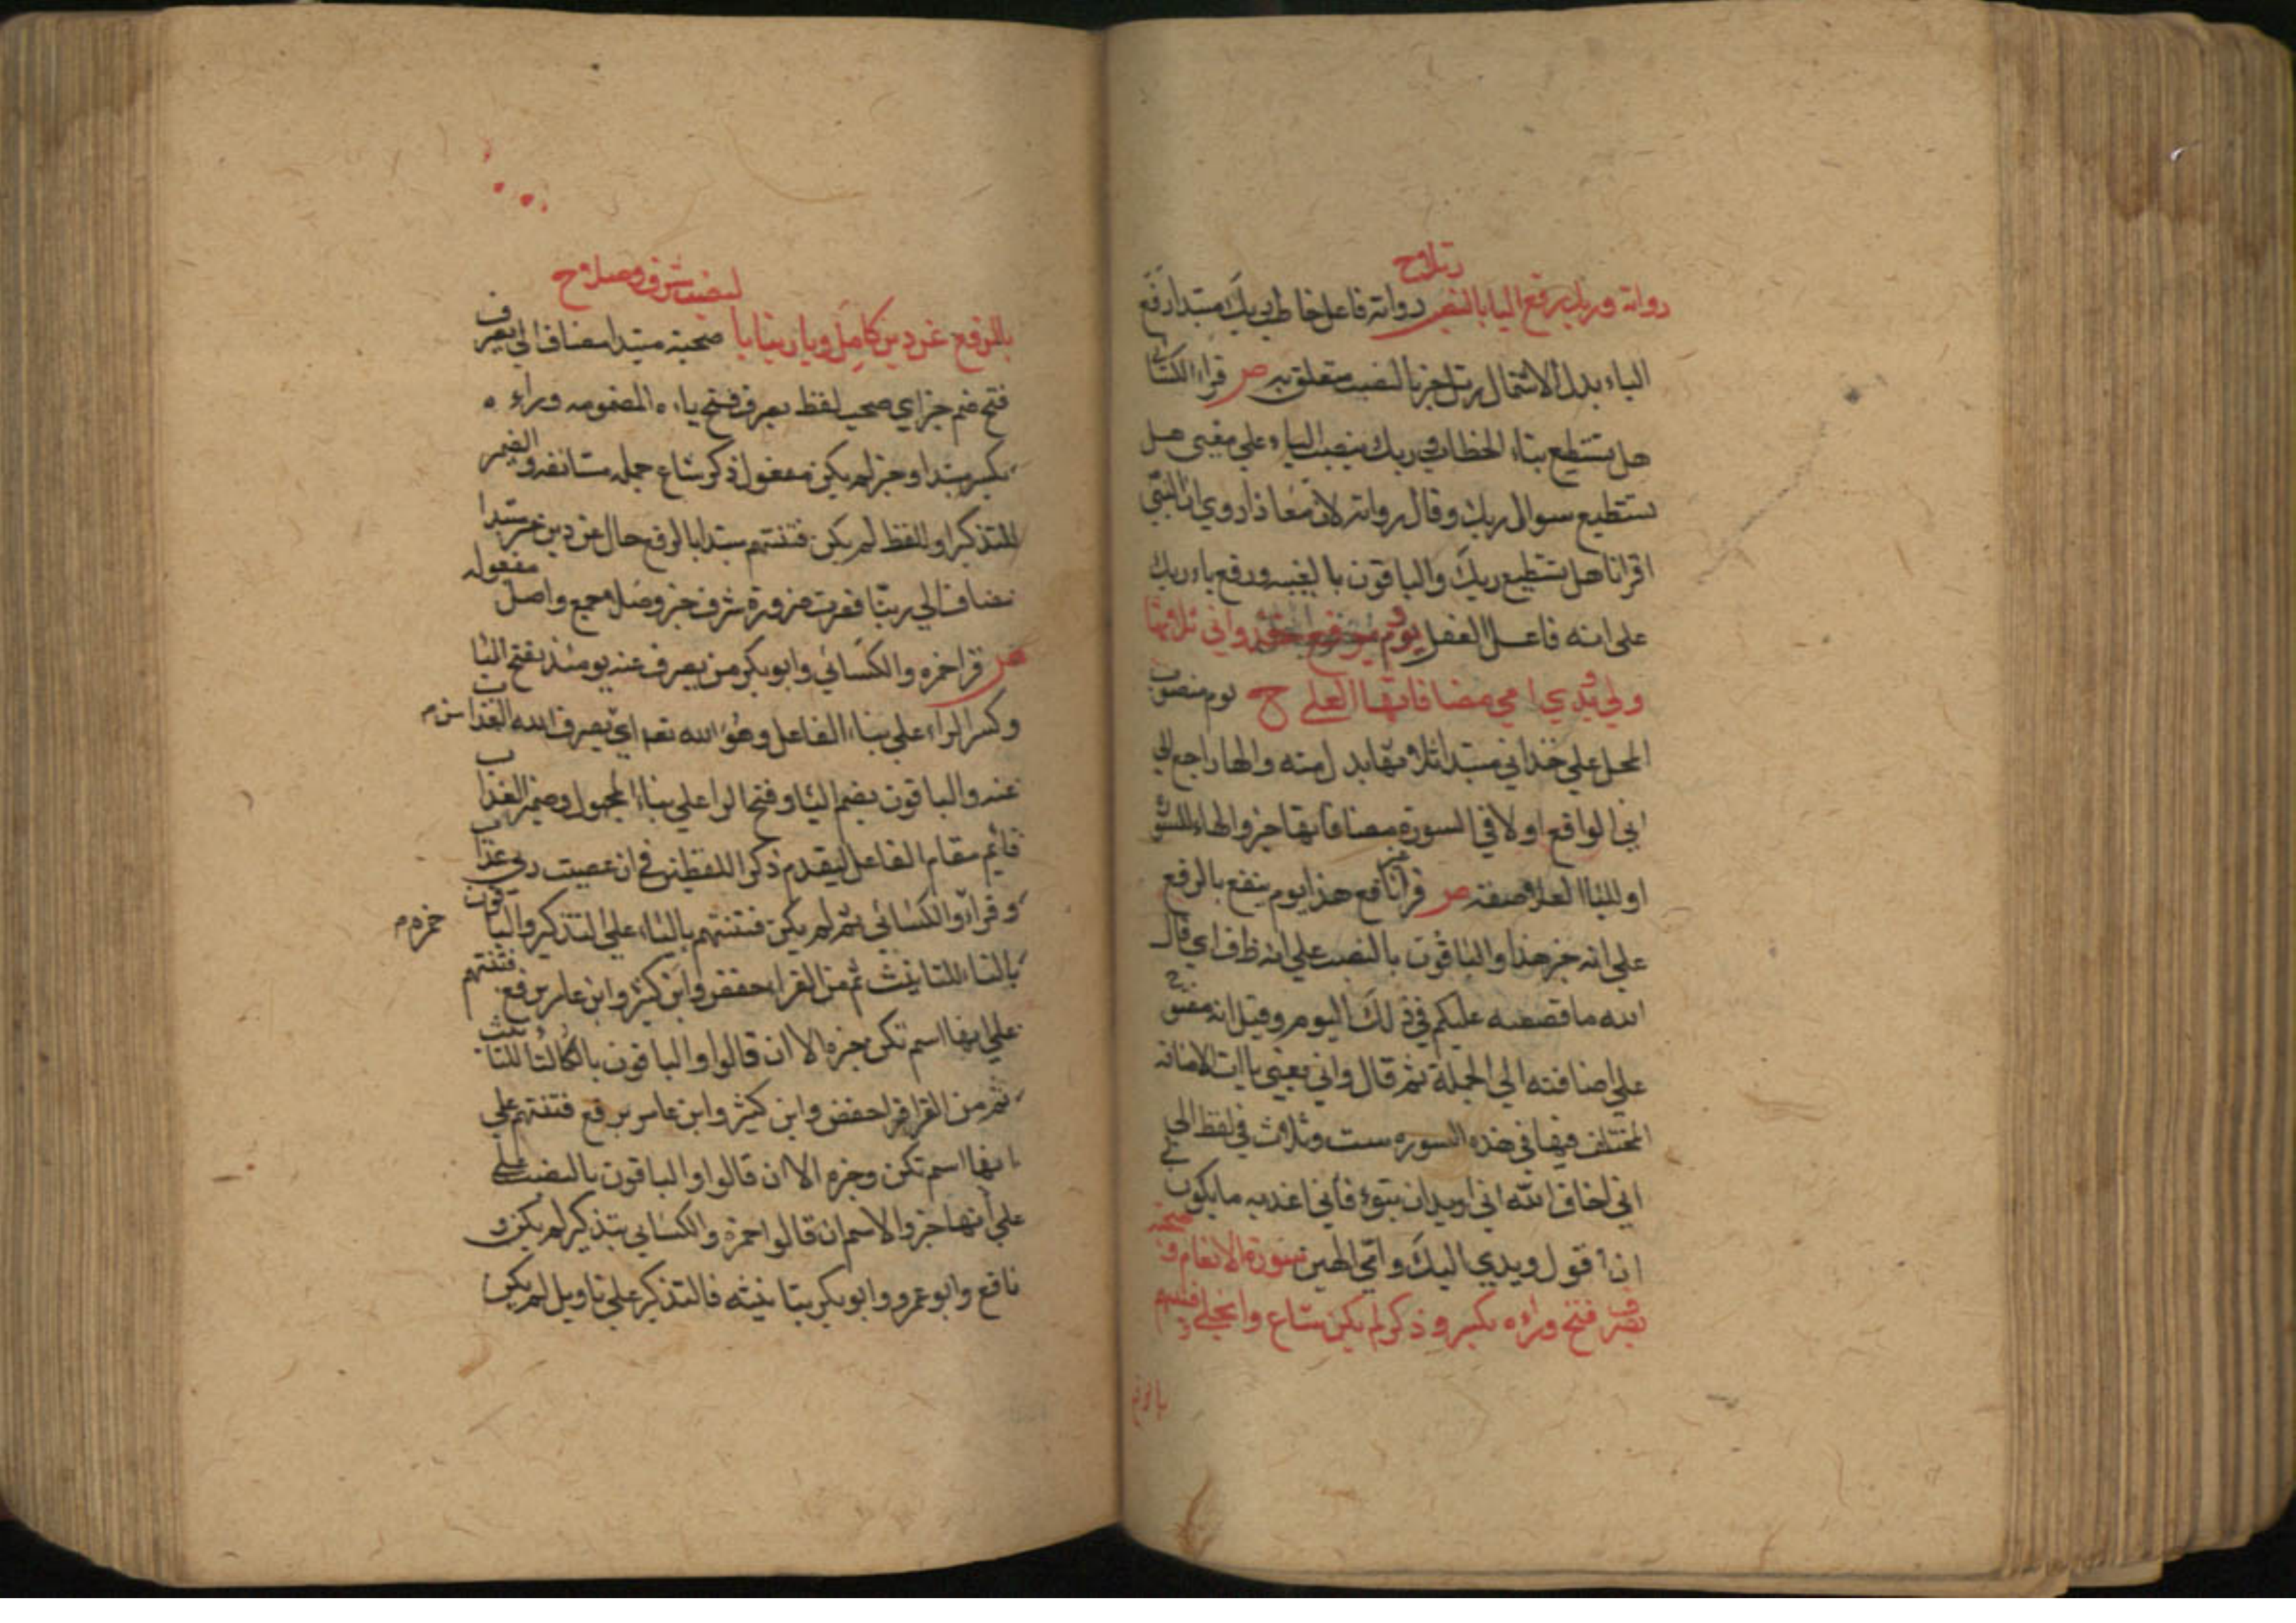 رتلاوح
رواته وربك رفع اليا بالنصب رواته فاعل خاطب ربك مبتدا رفع
الباء بدل الاشتمال رتلا خبر بالنصب متعلق به ص قراء الكسائي
هل تستطيع بتاء الخطاب في ربك بنصب الباء علي معني هل
تستطيع سوال ربك وقال رواته لان معاذا روي ان النبي
اقرانا هل تستطيع ربك والباقون بالغيبه ورفع باء ربك
علي انه فاعل الفعل ويوم برفع خذ واني ثلاثها
ولي ويدي امي مضافاتها العلي ح يوم منصوب
المحل علي خذ اني مبتدا ثلاثها بدل منه والها راجع الي
اني الواقع اولا في السورة مضافاتها خبر والهاء للسورة
او لليا العلا صفته ص قرا نافع هذا يوم ينفع بالرفع
علي انه خبر هذا والباقون بالنصب علي انه ظرف اي قال
الله ما قصصه عليكم في ذلك اليوم وقيل انه مفتوح
علي اضافته الي الجملة ثم قال واني يعني ياات الاضافه
المختلف فيها في هذه السوره ست وثلاث في لفظ اني
اني اخاف الله اني اريد ان تبوء فاني اعذبه ما يكون لي
ان اقول ويدي اليك وامي الهين سورة الانعام وصحبة
يصرف فتح وراءه بكسر وذكر لم يكن شاع وانجلي وفتنتهم
بالرفع
لينصب شرف وصلا ح
بالرفع عن دين كامل ويا ربنا بالـ صحبته مبتدا مضاف الي يصرف
فتح ضم خبر اي صحب لفظ يصرف فتح ياءه المضمومه وراءه
بكسر مبتدا وخبر لم يكن مفعول ذكر شاع جمله مستانفه والضمير
للتذكير او للفظ لم يكن فتنتهم مبتدا بالرفع حال عن دين خبر مبتدا
مضاف الي ربنا فقرت ضرورة شرف خبر وصلا جمع واصل مفعوله
ص قرا حمزه والكسائي وابو بكر من يصرف عنه يومئذ بفتح اليا
وكسر الراء علي بناء الفاعل وهو الله تعه اي يصرف الله العذاب
عنه والباقون بضم اليا وفتح الرا علي بناء المجهول وضمير العذاب
قائم مقام الفاعل ليقدم ذكر اللفظين في ان عصيت ربي عذاب
و قراء والكسائي ثم لم يكن فتنتهم بالياء علي التذكير والباقون
حمزه م
بالتاء للتانيث ثم من القراء حفص وابن كثير وابن عامر برفع فتنتهم
علي انها اسم تكن وخبره الا ان قالوا والباقون بالتا للتانيث
ثم من القرا قرا حفص وابن كثير وابن عامر برفع فتنتهم علي
انها اسم تكن وخبره الا ان قالوا والباقون بالنصب علي
علي انها خبر والاسم ان قالوا حمزة والكسائي بتذكير لم يكن و
نافع وابو عمرو وابو بكر بتانيثه فالتذكير علي تاويل لم يكن